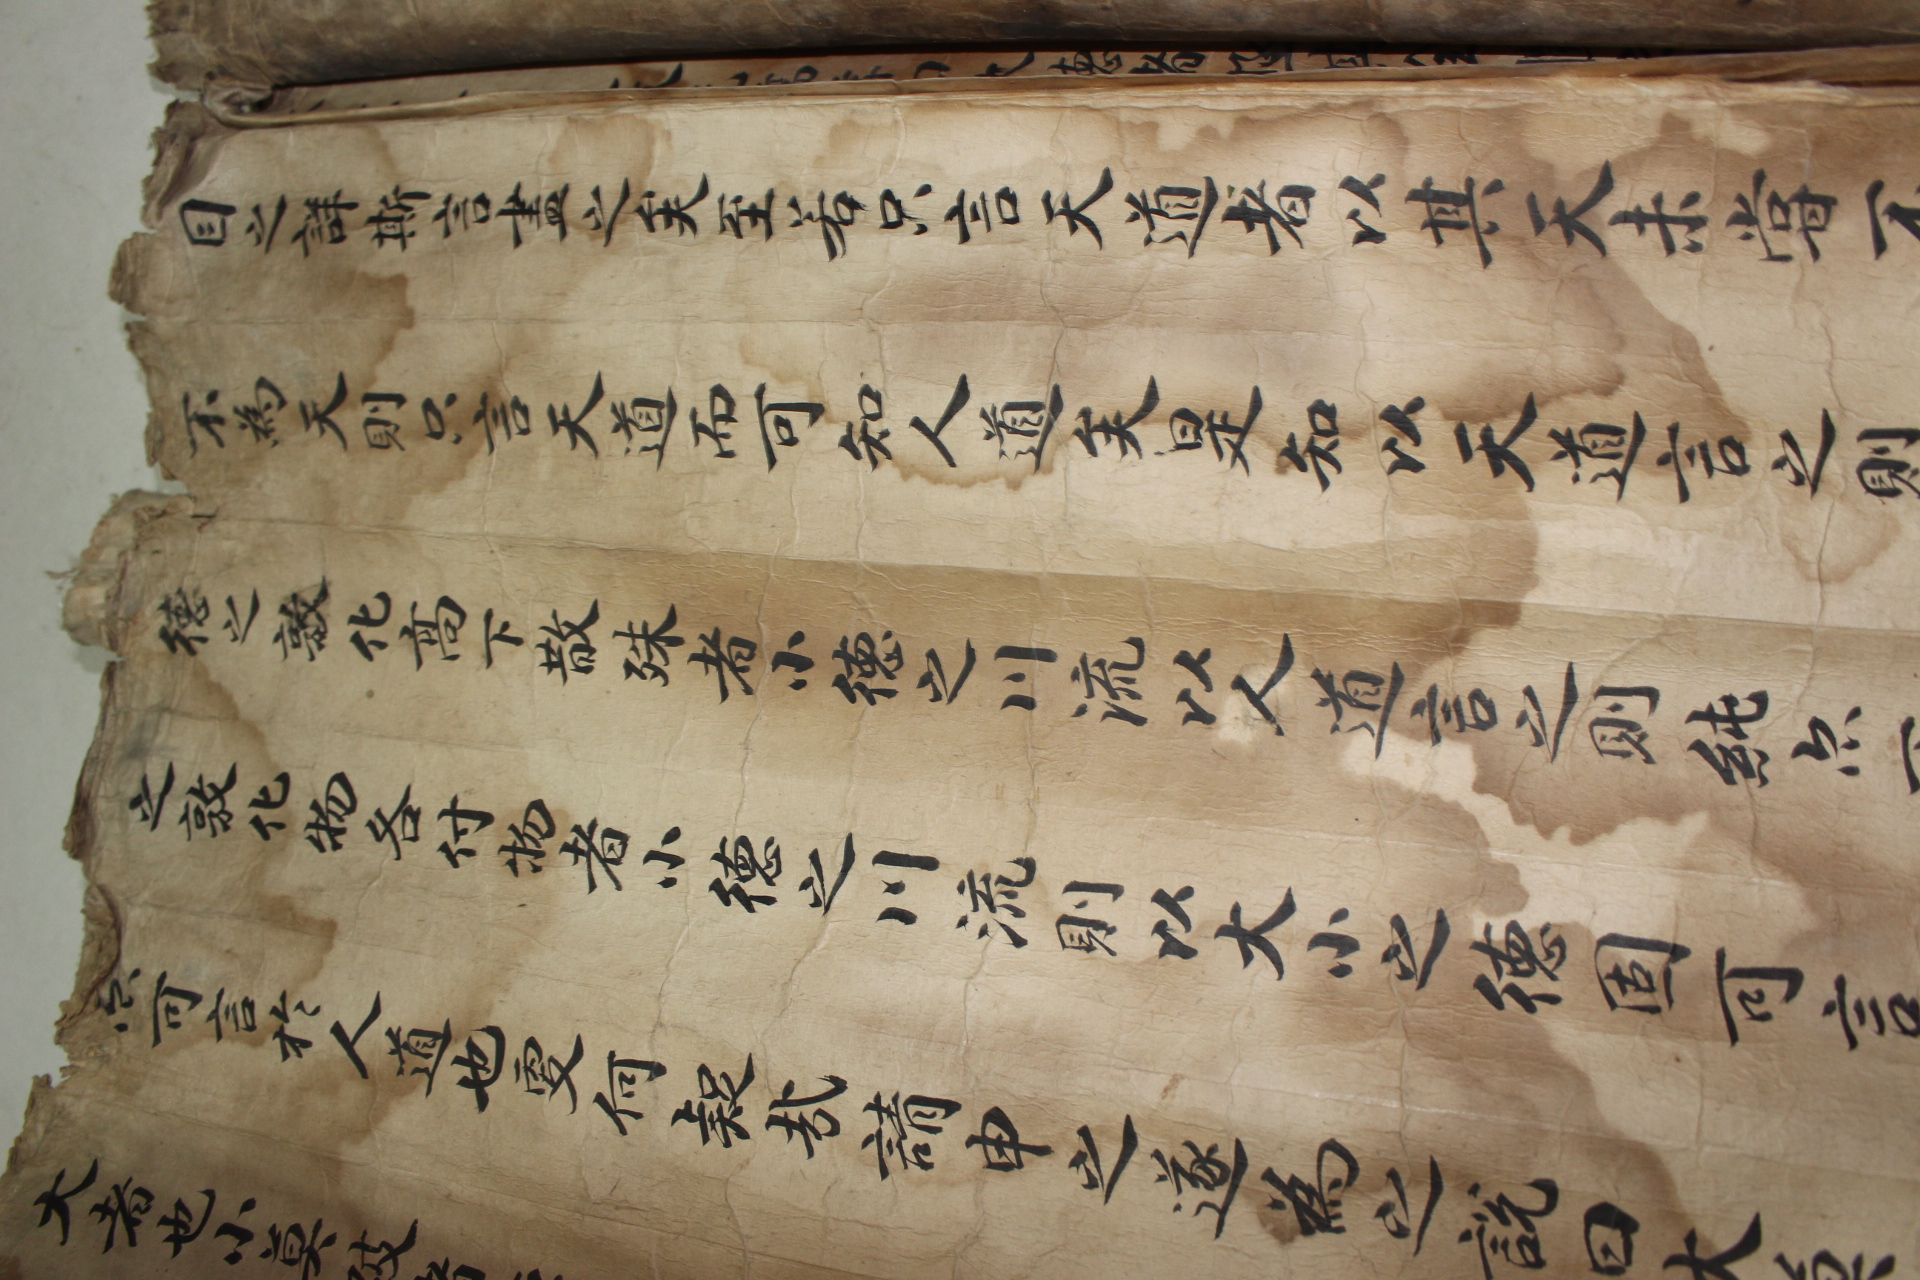 目之詳斯言盡之矣至若只言天道者以其天未嘗不
不為天則只言天道而可知人道矣是知以天道言之則
德之敦化高下散殊者小德之川流以人道言之則純亦
之敦化物各付物者小德之川流則以大小之德固可言
亦可言於人道也更何疑哉請申之遂為之說曰大莫
大者也小莫破者